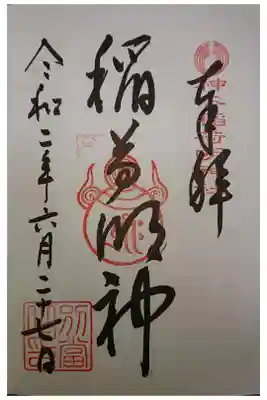 奉拝
稲荷明神
令和二年六月二十七日